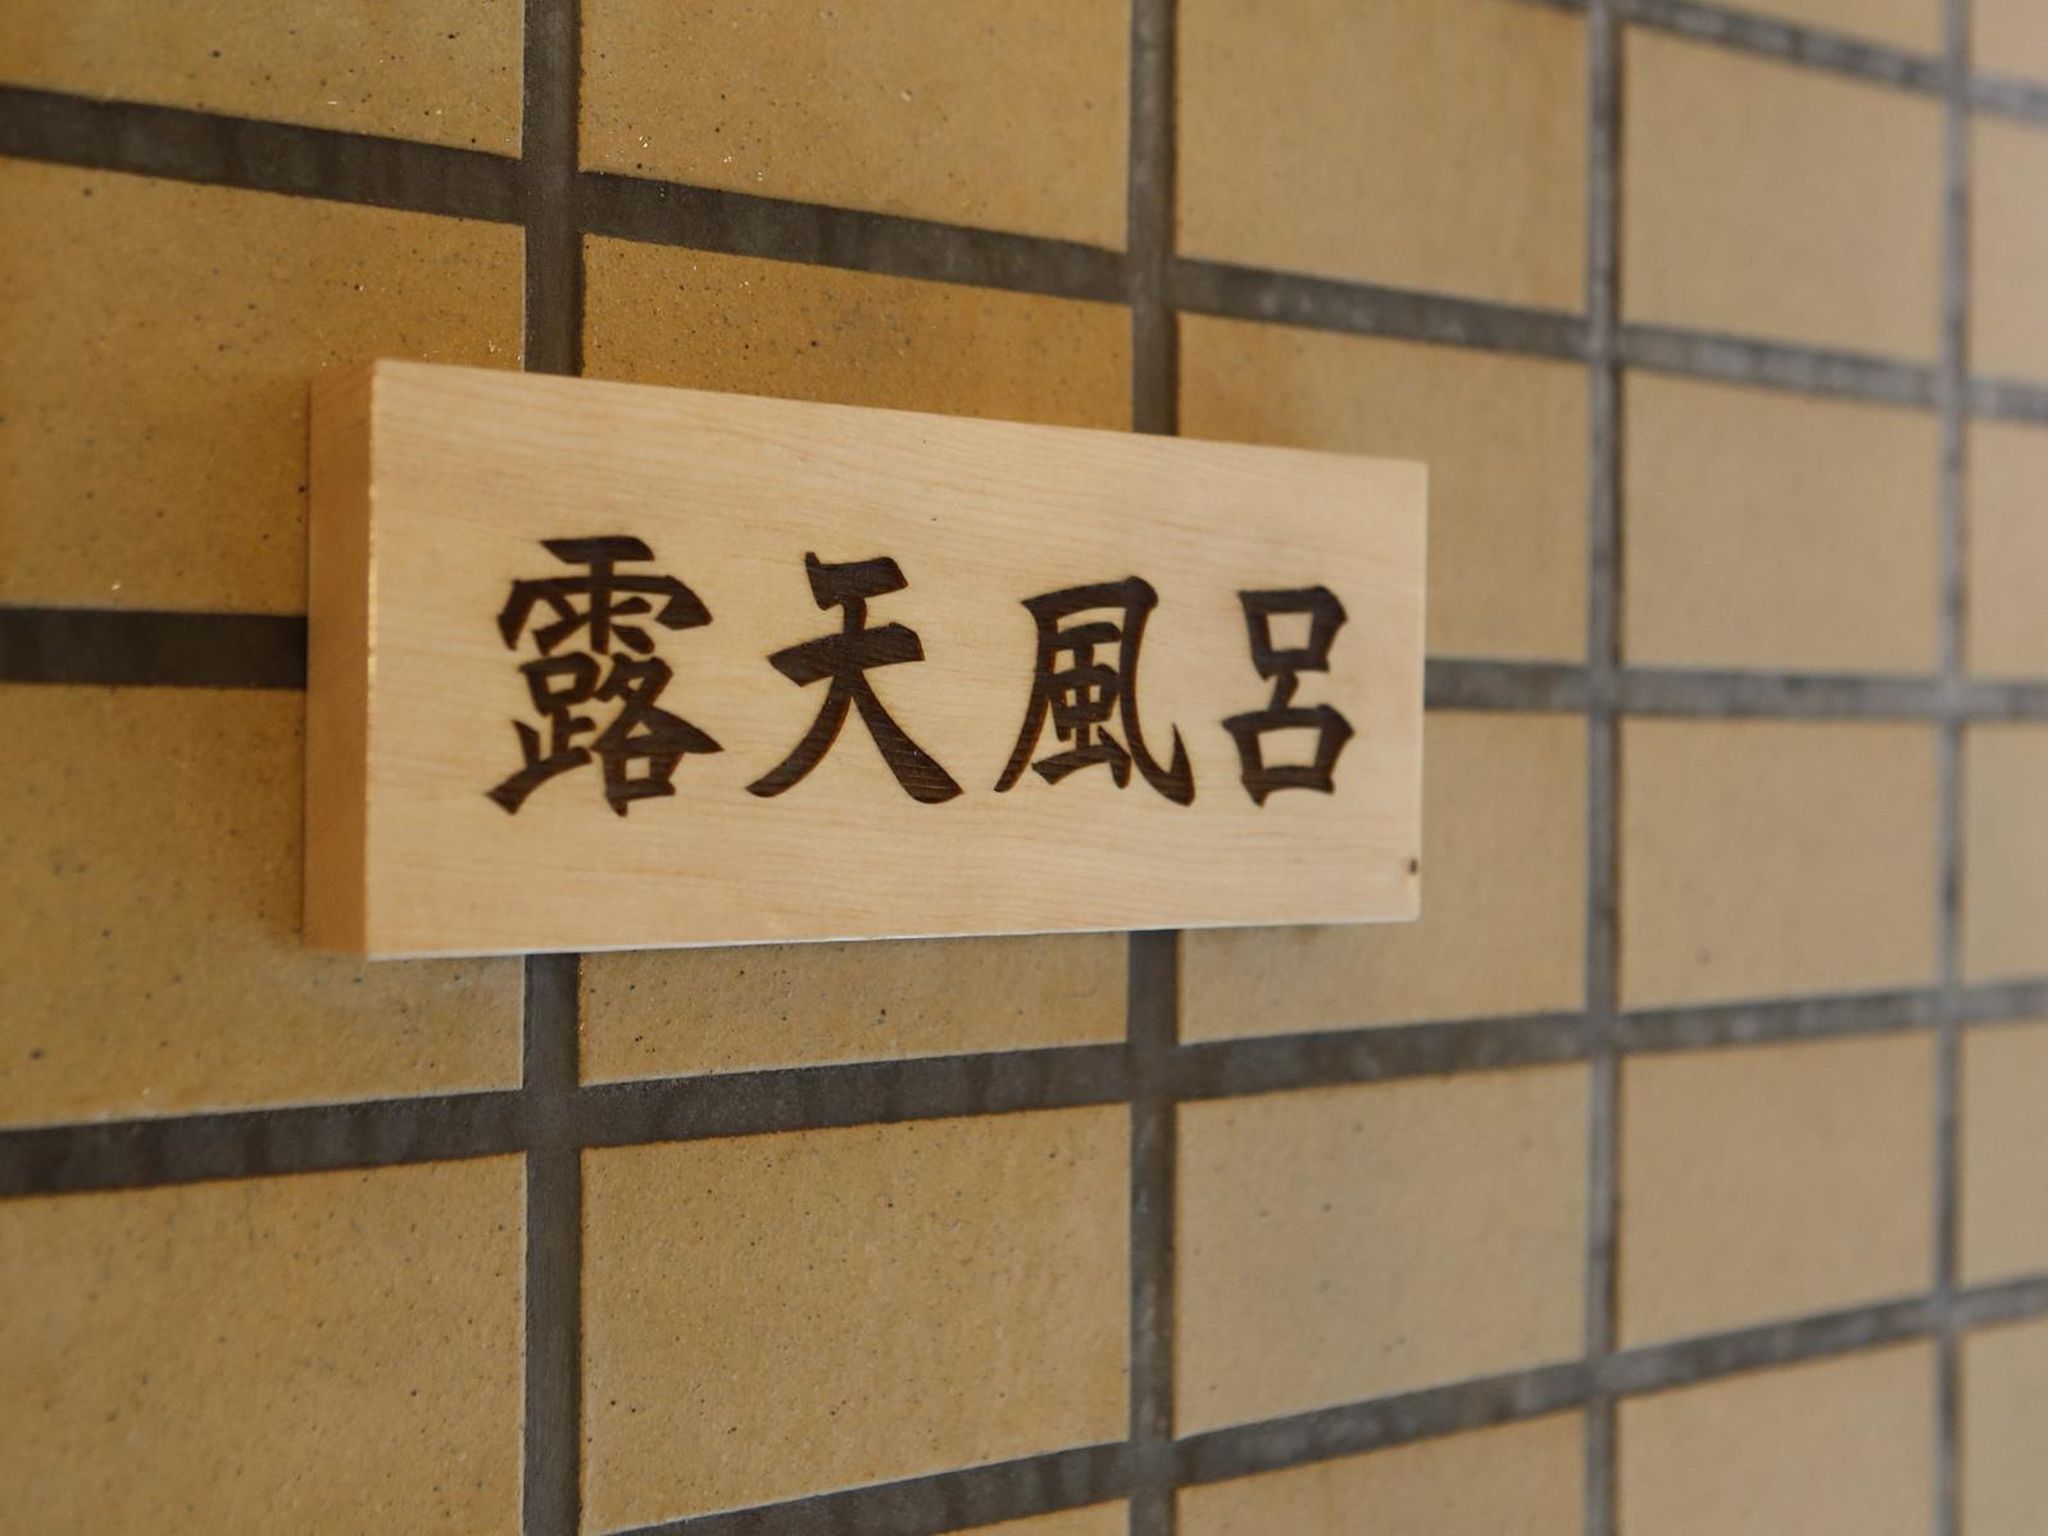 露天風呂